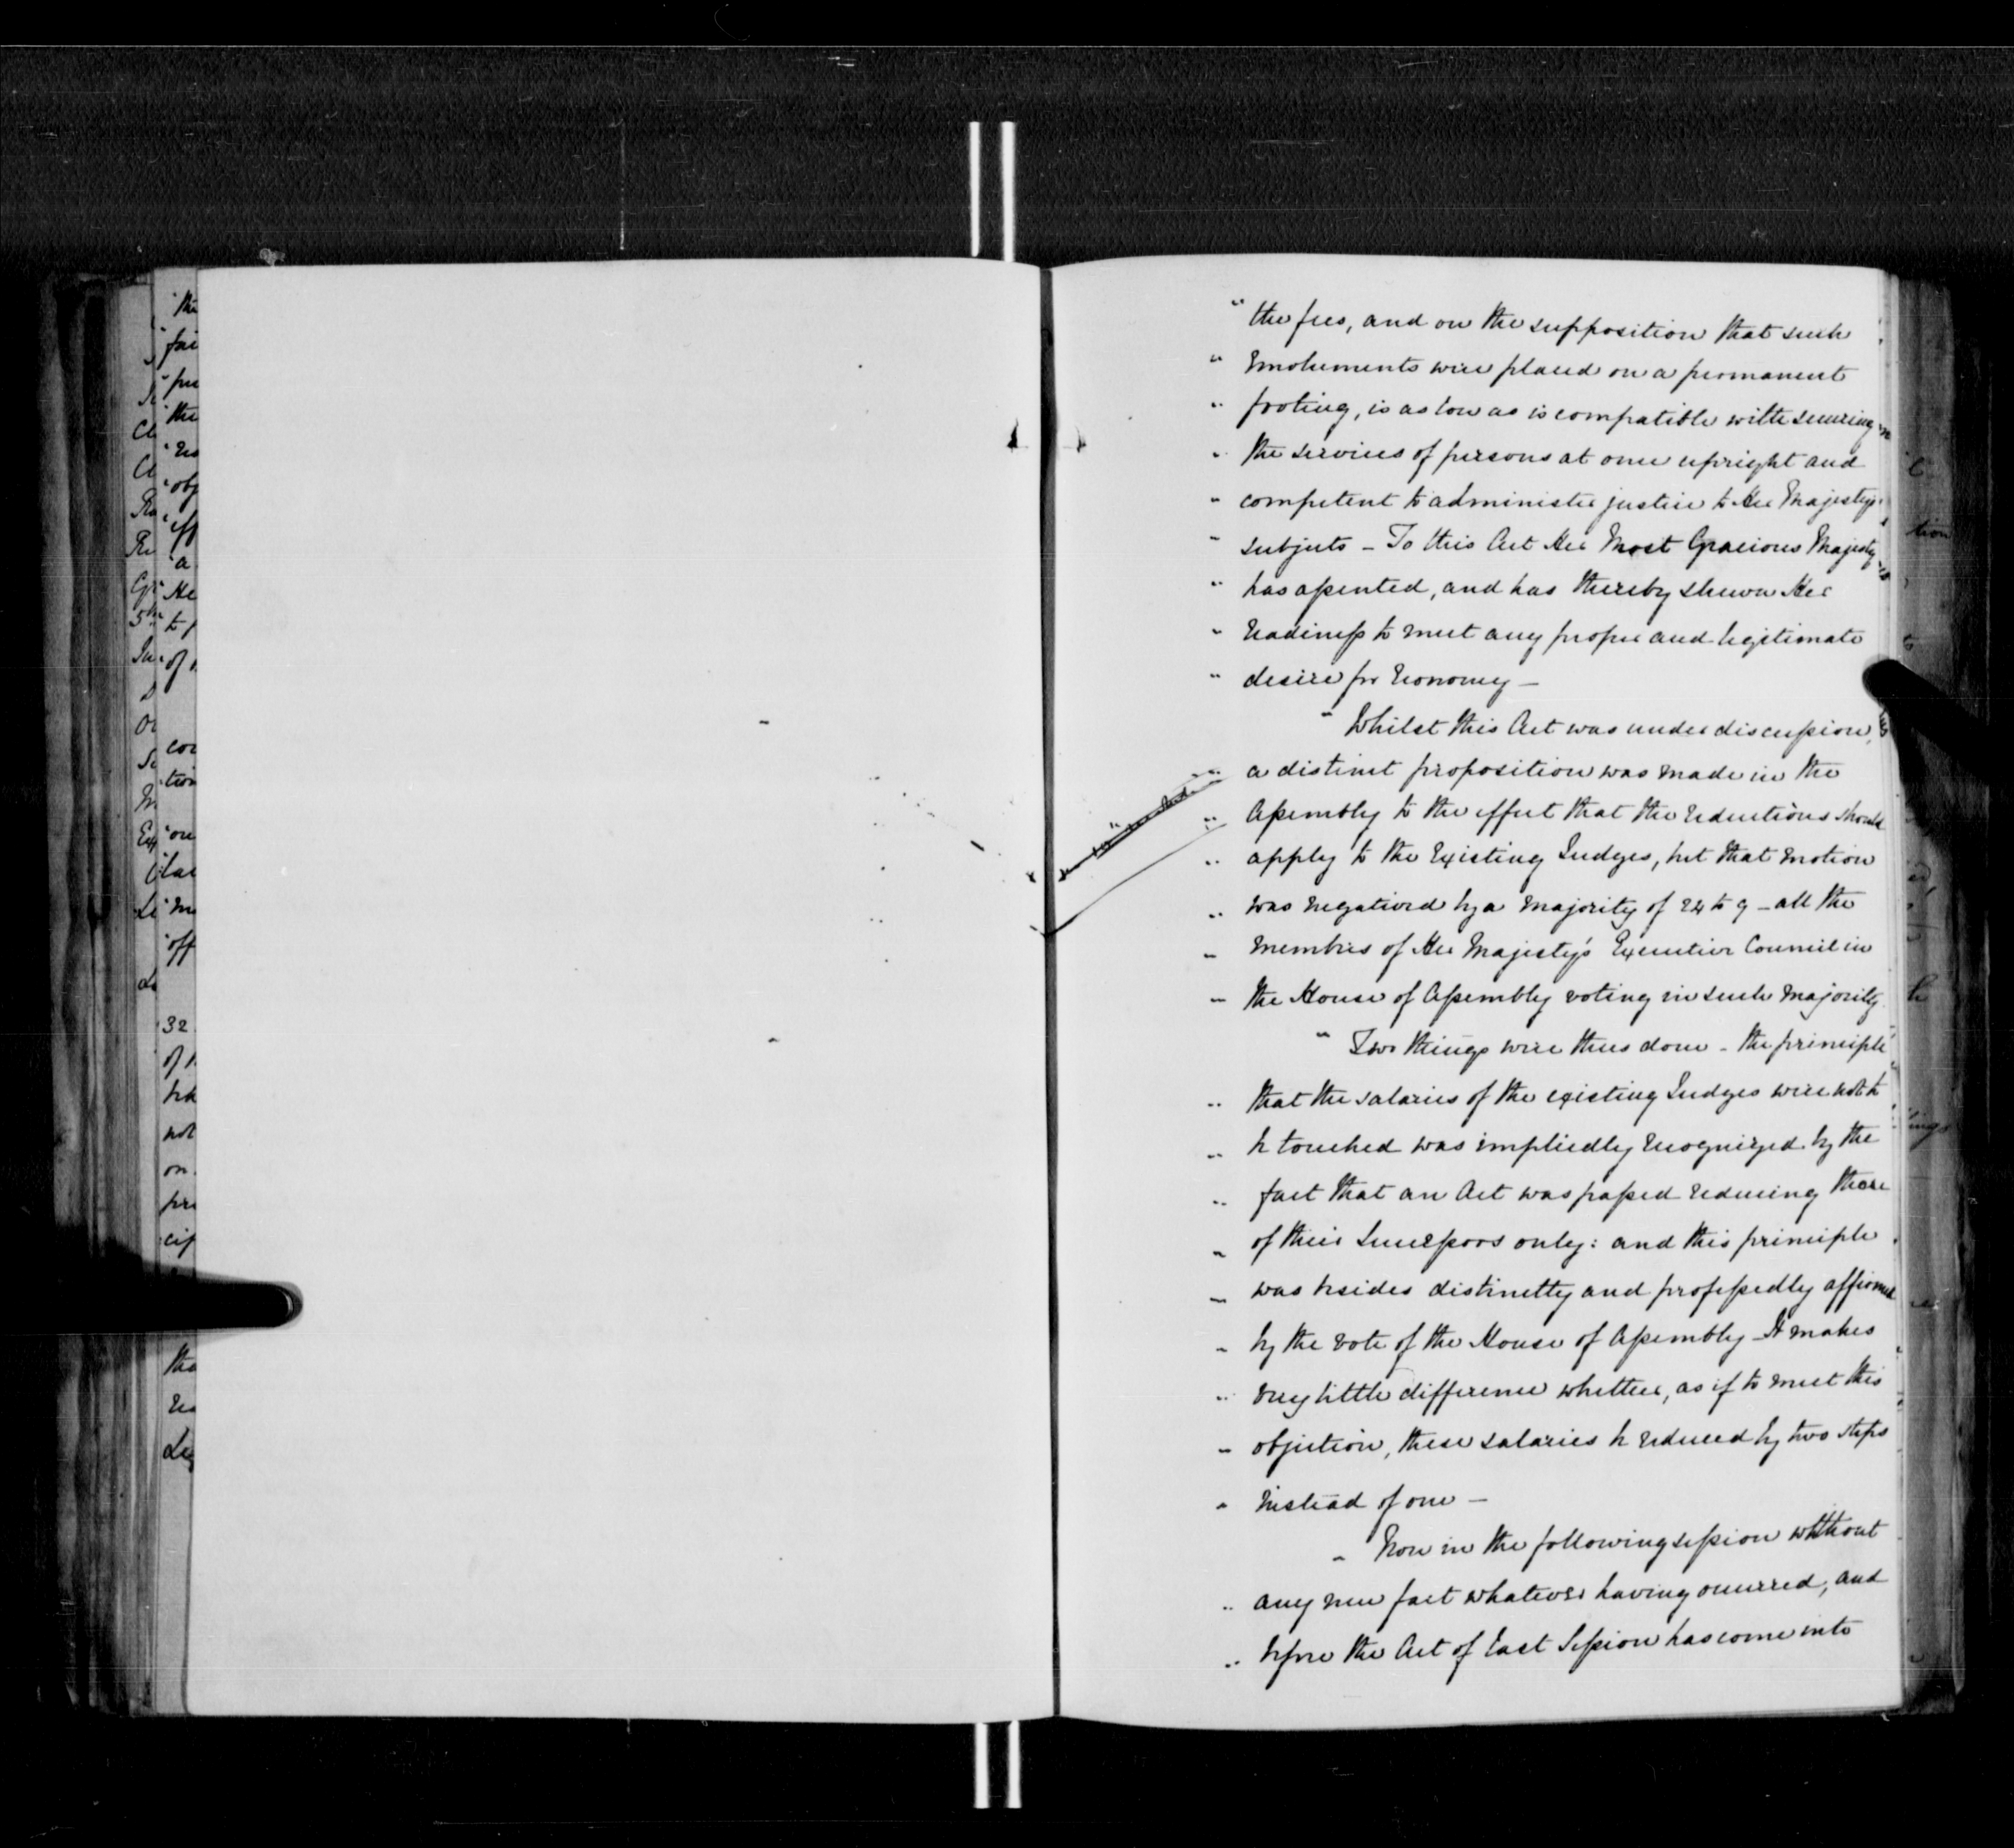 " the fees, and on the supposition that such
" Emoluments were placed on a permanent
" footing, is as low as is compatible with securing
" the services of persons at once upright and
" competent to administer justice to Her Majesty's
" subjects – To this Act Her Most Gracious Majesty
" has assented, and has thereby shewn Her
" readiness to meet any proper and legitimate
" desire for Economy –
" Whilst this Act was under discussion,
" a distinct proposition was made in the
" Assembly to the effect that the reductions should
" apply to the Existing Judges, but that motion
" was negatived by a majority of 24 to 9 – all the
" members of Her Majesty's Executive Council in
" the House of Assembly voting in such majority.
" Two things were thus done – the principle
" that the salaries of the existing Judges were not to
" be touched was impliedly recognized by the
" fact that an Act was passed reducing those
" of their Successors only: and this principle
" was besides distinctly and professedly affirmed
" by the vote of the House of Assembly – It makes
" very little difference whether, as if to meet this
" objection, these salaries be reduced by two steps
" instead of one –
" Now in the following session without
" any new fact whatever having occurred, and
" before the Act of last Session has come into